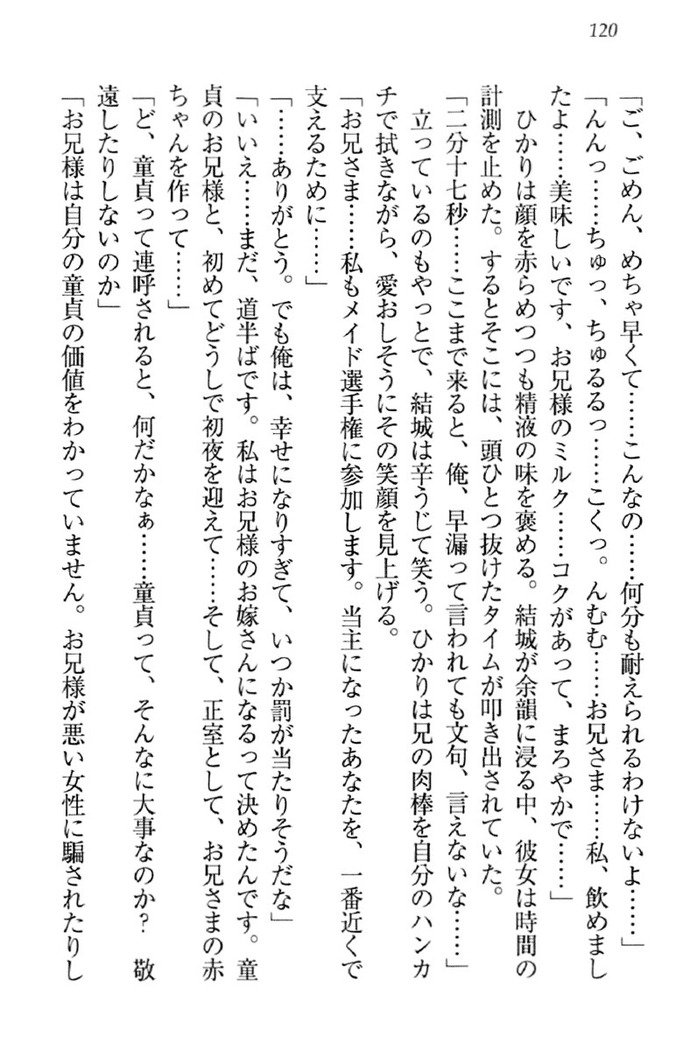 120
「ご、ごめん、めちゃ早くて……こんなの……何分も耐えられるわけないよ……」
「んんっ……ちゅっ、ちゅるるっ……こくっ。んむむ……お兄さま……私、飲めまし
たよ……美味しいです、お兄様のミルク……コクがあって、まろやかで……」
ひかりは顔を赤らめつつも精液の味を褒める。結城が余韻に浸る中、彼女は時間の
計測を止めた。するとそこには、頭ひとつ抜けたタイムが叩き出されていた。
「二分十七秒……ここまで来ると、俺、早漏って言われても文句、言えないな……」
立っているのもやっとで、結城は辛うじて笑う。ひかりは兄の肉棒を自分のハンカ
チで拭きながら、愛おしそうにその笑顔を見上げる。
「お兄さま……私もメイド選手権に参加します。当主になったあなたを、一番近くで
支えるために……」
「……ありがとう。でも俺は、幸せになりすぎて、いつか罰が当たりそうだな」
「いいえ……まだ、道半ばです。私はお兄様のお嫁さんになるって決めたんです。童
貞のお兄様と、初めてどうしで初夜を迎えて……そして、正室として、お兄さまの赤
ちゃんを作って……」
「ど、童貞って連呼されると、何だかなぁ……童貞って、そんなに大事なのか？　敬
遠したりしないのか」
「お兄様は自分の童貞の価値をわかっていません。お兄様が悪い女性に騙されたりし